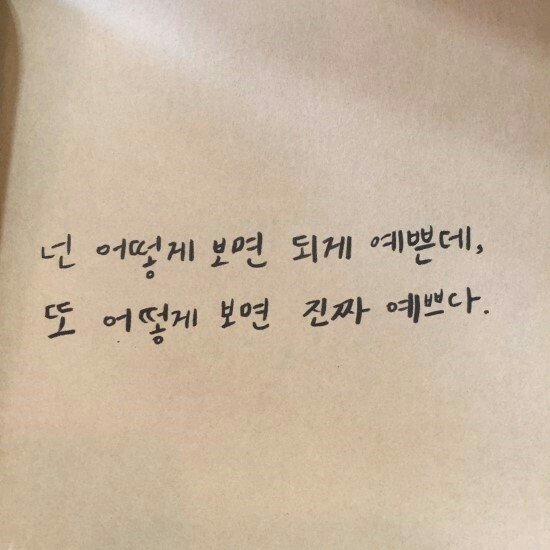 넌 어떻게 보면 되게 예쁜데,
또 어떻게 보면 진짜 예쁘다.